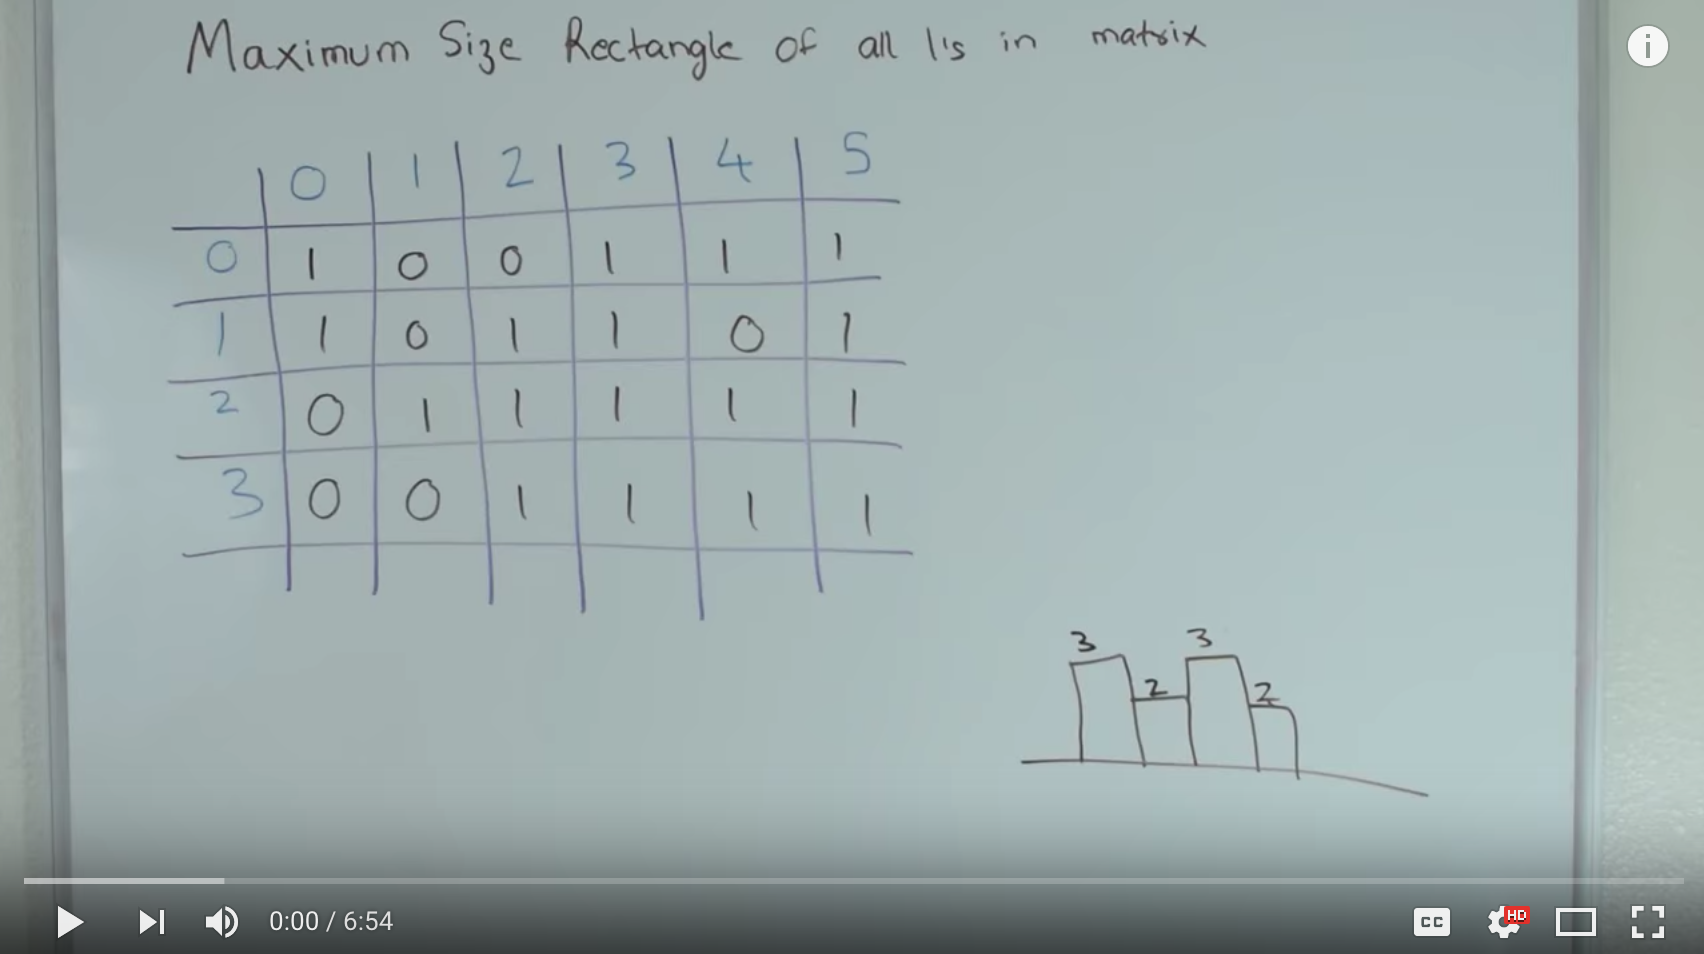 Maximum Size Rectangle of all 1's in matrix
0 1 2 3 4 5
0 1 0 0 1 1 1
1 1 0 1 1 0 1
2 0 1 1 1 1 1
3 0 0 1 1 1 1
3 2 3 2
0:00 / 6:54
CC HD